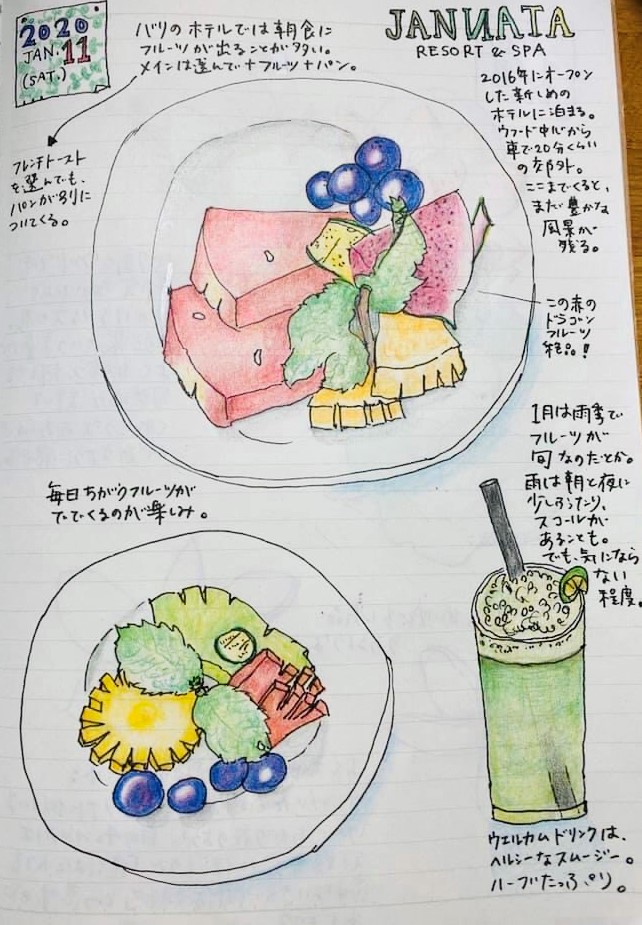 2020
JAN. 11
(SAT.)
バリのホテルでは朝食に
フルーツが出ることが多い。
メインは選んで+フルーツ+パン。
JANNATA
RESORT & SPA
2016年にオープン
した新しめの
ホテルに泊まる。
ウブード中心から
車で20分くらい
の郊外。
ここまでくると、
まだ豊かな
風景が
残る。
フレンチトースト
を選んでも、
パンが別に
ついてくる。
この赤の
ドラゴン
フルーツ
絶品!
1月は雨季で
フルーツが
旬なのだとか。
雨は朝と夜に
少しふったり、
スコールが
あることも。
でも、気になら
ない
程度。
毎日ちがうフルーツが
でてくるのが楽しみ。
ウェルカムドリンクは、
ヘルシーなスムージー。
ハーブたっぷり。